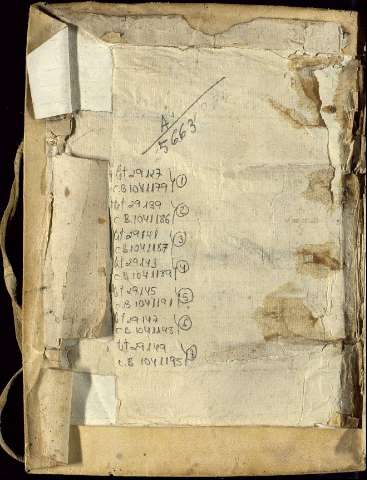 A
5663
bt 29127
c.B 1041179 } 1
tbt 29139
c.B 1041186 } 2
bt 29141
c.B 1041187 } 3
bt 29143
c.B 1041189 } 4
bt 29145
c.B 1041191 } 5
bt 29147
c.B 1041193 } 6
bt 29149
c.B 1041195 } 7